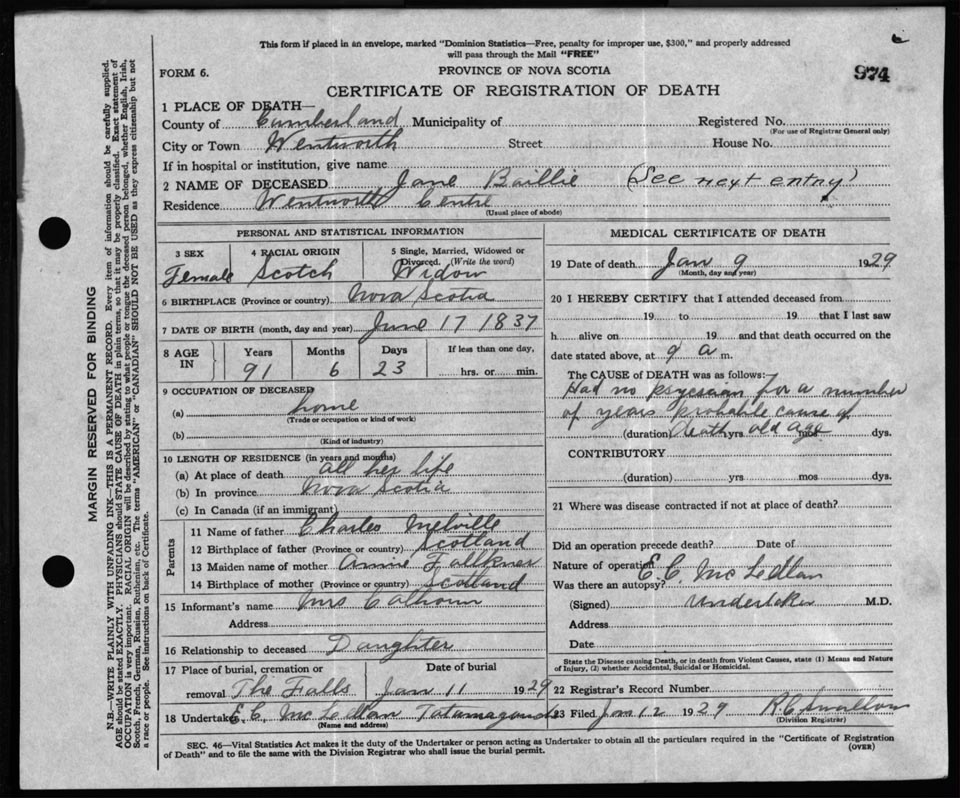 This form if placed in an envelope, marked "Dominion Statistics—Free, penalty for improper use, $300," and properly addressed
will pass through the Mail "FREE"
FORM 6.
PROVINCE OF NOVA SCOTIA
974
CERTIFICATE OF REGISTRATION OF DEATH
1 PLACE OF DEATH—
County of Cumberland Municipality of Registered No.
(For use of Registrar General only)
City or Town Wentworth Street House No.
If in hospital or institution, give name
2 NAME OF DECEASED Jane Baillie (See next entry)
Residence Wentworth Centre
(Usual place of abode)
PERSONAL AND STATISTICAL INFORMATION
3 SEX 4 RACIAL ORIGIN 5 Single, Married, Widowed or
Divorced. (Write the word)
Female Scotch Widow
6 BIRTHPLACE (Province or country) Nova Scotia
7 DATE OF BIRTH (month, day and year) June 17 1837
8 AGE IN Years Months Days If less than one day,
91 6 23 hrs. or min.
9 OCCUPATION OF DECEASED
(a) home
(Trade or occupation or kind of work)
(b)
(Kind of industry)
10 LENGTH OF RESIDENCE (in years and months)
(a) At place of death all her life
(b) In province Nova Scotia
(c) In Canada (if an immigrant)
Parents
11 Name of father Charles Melville
12 Birthplace of father (Province or country) Scotland
13 Maiden name of mother Annie Falkner
14 Birthplace of mother (Province or country) Scotland
15 Informant's name Mrs Calhoun
Address
16 Relationship to deceased Daughter
17 Place of burial, cremation or Date of burial
removal The Falls Jan 11 1929
18 Undertaker E.C. McLellan Tatamagouche
(Name and address)
MEDICAL CERTIFICATE OF DEATH
19 Date of death Jan 9 1929
(Month, day and year)
20 I HEREBY CERTIFY that I attended deceased from
19 to 19 that I last saw
h alive on 19 and that death occurred on the
date stated above, at 9 a m.
The CAUSE of DEATH was as follows:
Had no psycsian for a number
of years probable cause of
(duration) Death yrs old age mos dys.
CONTRIBUTORY
(duration) yrs mos dys.
21 Where was disease contracted if not at place of death?
Did an operation precede death? Date of
Nature of operation E.C. McLellan
Was there an autopsy?
(Signed) Undertaker M.D.
Address
Date
State the Disease causing Death, or in death from Violent Causes, state (1) Means and Nature
of Injury, (2) whether Accidental, Suicidal or Homicidal.
22 Registrar's Record Number
23 Filed Jan 12 1929 R C Swallow
(Division Registrar)
SEC. 46—Vital Statistics Act makes it the duty of the Undertaker or person acting as Undertaker to obtain all the particulars required in the "Certificate of Registration
of Death" and to file the same with the Division Registrar who shall issue the burial permit.
(OVER)
MARGIN RESERVED FOR BINDING
N.B.—WRITE PLAINLY WITH UNFADING INK—THIS IS A PERMANENT RECORD. Every item of information should be carefully supplied.
AGE should be stated EXACTLY. PHYSICIANS should STATE CAUSE OF DEATH in plain terms, so that it may be properly classified. Exact statement of
OCCUPATION is very important. RACIAL ORIGIN will be described by stating to what people or tongue the deceased person belonged, whether English, Irish,
Scotch, French, German, Russian, Ruthenian, etc. The terms "AMERICAN" or "CANADIAN" SHOULD NOT BE USED as they express citizenship but not
a race or people. See instructions on back of Certificate.